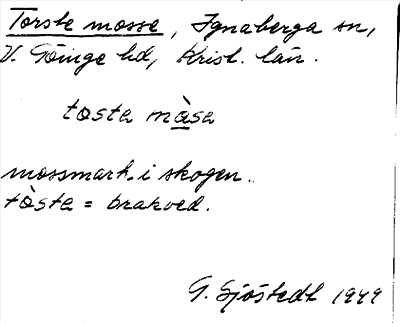 Torste mosse, Ignaberga sn,
V. Göinge hd, Krist. län.
tɑste mɑ̀sɑ
mossmark i skogen.
tɑ̀ste = brakved.
G. Sjöstedt 1949